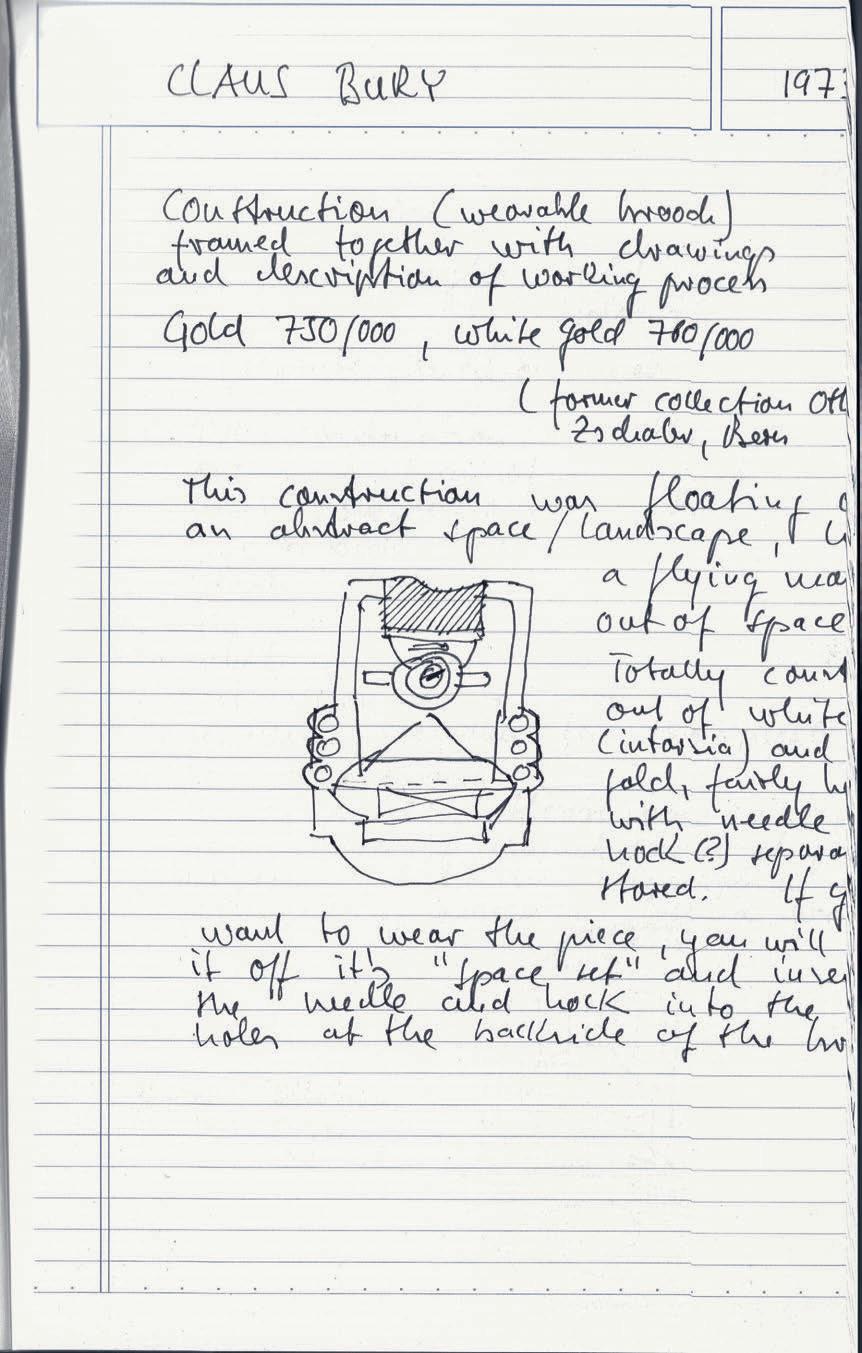 CLAUS BURY
197
Construction (wearable brooch)
framed together with drawings
and description of working process
Gold 750/000, white gold 760/000
(former collection Ott
Zschaler, Bern
This construction was floating
an abstract space/landscape,
a flying
out of space
Totally
out of white
(intarsia) and
gold, fairly
with needle
hock(?)
stored. If
want to wear the piece, you will
it off it's "space set" and
the needle and hock into the
holes at the backside of the